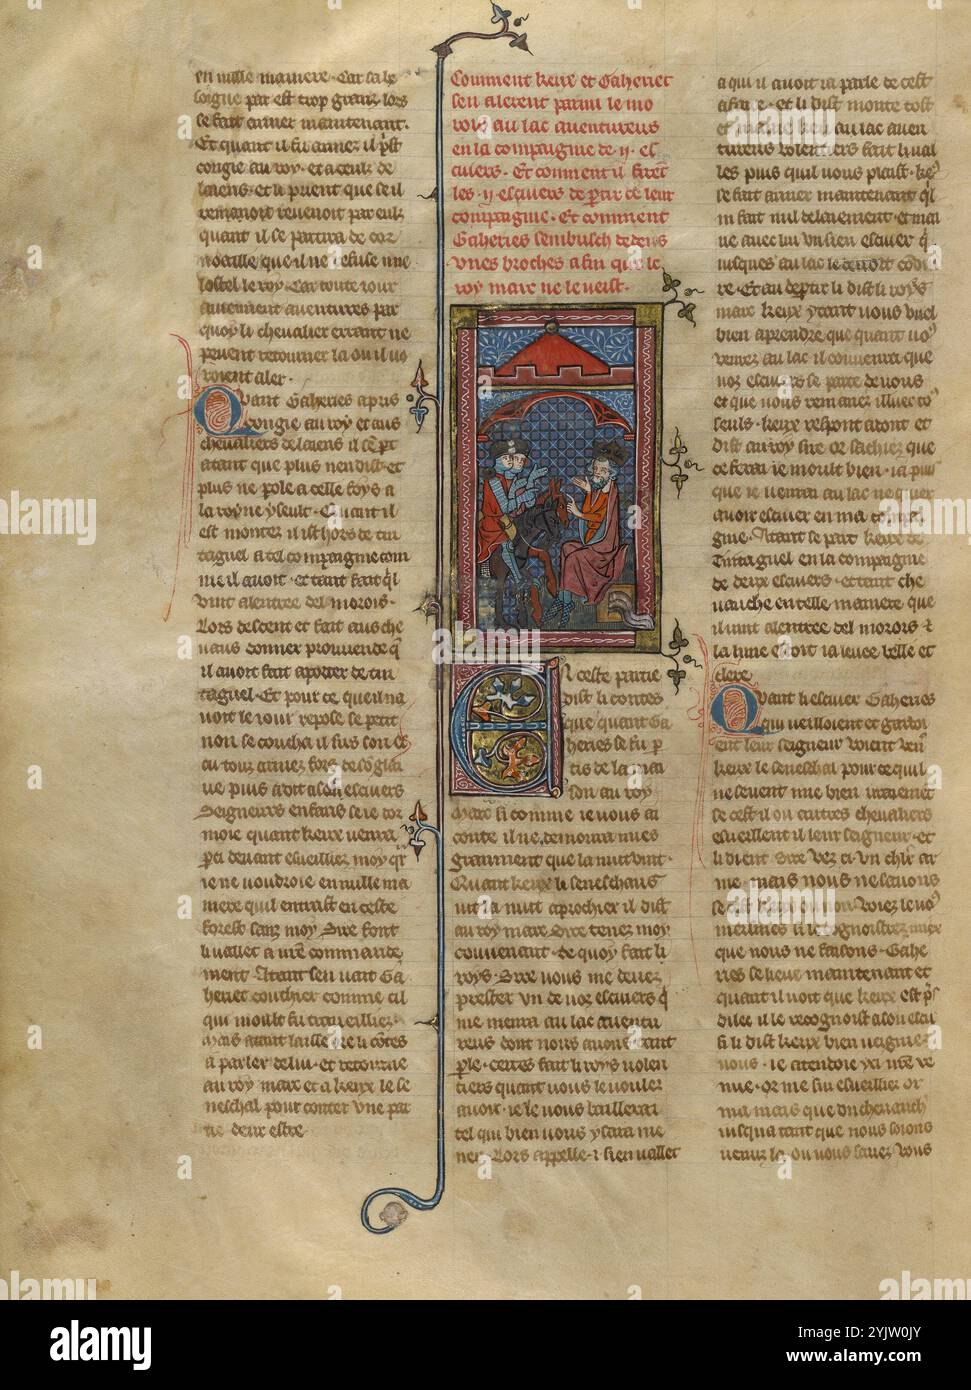 en mille maniere. Car sa be
soigne par est trop granz lors
se fait armer maintenant.
Et quant il fu armez il prent
congie au roy. et a ceulz de
laiens. et li prient que se il
remanoit revenoit par eulz
quant il se partira de cor
noaille que il ne refuse mie
lostel le roy. Car toute iour
aviennent aventures par
quoy li chevalier errant ne
pevent retourner la ou il vo
roient aler.
Quant Gaheries a pris
congie au roy et aus
chevaliers de laiens il se part
atant que plus nen dist. et
plus ne pole a celle foys a
la royne yseult. Quant il
est montez il ist hors de tin
taguel a tel compaignie com
me il avoit. et tant fait quil
vint a lentree del morois.
Lors descent et fait aus che
vaus donner prouvende quil
il avoit fait aporter de tin
taguel. Et pour ce que il na
voit le iour repose se petit
non se coucha il sus son es
cu touz armez fors de
ve puis a dit a son escuiers
Seigneurs enfans se ie dor
moie quant keux venra
par ci devant esveilliez moy quar
ie ne voudroie en mille ma
niere quil entrast en ceste
forest sanz moy Sire font
li vallet a vostre commande
ment. Atant sen vait Ga
heriet couchier comme cil
qui moult fu travailliez.
Mais atant laisse li contes
a parler de lui. et retorne
au roy marc et a keux le se
neschal pour conter une par
tie de leur estre
Comment keux et Gaheriet
sen alerent parmi le mo
rois au lac aventureus
en la compaignie de .ij. es
cuiers. Et comment il firent
les .ij. escuiers departir de leur
compaignie. Et comment
Gaheries sembusch dedens
unes broches afin que le
roy marc ne le veist.
En ceste partie
dist li contes
que quant Ga
heries se fu par
tis de la mai
son au roy
Marc si comme ie vous ai
conte il ne demora mies
granment que la nuit vint.
Quant keux li seneschaus
vit la nuit aprochier il dist
au roy marc Sire tenez moy
couvenant. de quoy fait li
roys. Sire vous me devez
prester un de voz escuiers qui
me menra au lac aventu
reus dont nous avons tant
parle. certes fait li roys volen
tiers quant vous le voulez
avoir. ie le vous baillerai
tel qui bien vous y sara me
ner. Lors appelle .i. sien vallet
a qui il avoit ia parle de cest
afaire. et li dist monte tost
et maine keu au lac aven
tureus volentiers fait li val
les puis quil vous plaist. keux
se fait armer maintenant quil
ni fait nul delaiement. et mai
ne avec lui un sien escuier qui
iusques au lac le devoit condui
re. Et au departir li dist li roys
marc keux ytant vous vueil
bien aprendre que quant vous
venrez au lac il couvenra que
voz escuiers se parte de vous
et que vous remanez illuec touz
seuls. keux respont atant et
dist au roy sire ce sachiez que
ce ferai ie moult bien. ia puis
que ie venrai au lac ne quier
avoir escuier en ma compai
gnie. Atant se part keux de
Tintaguel en la compaignie
de deux escuiers. et tant che
vauche en telle maniere que
il vint a lentree del morois et
la lune estoit ia levee belle et
clere
Quant li escuier Gaheries
qui veilloient et gardoi
ent leur seigneur voient venir
keux le seneschal pour ce quil
ne sevent mie bien vraiement
se cest il ou autres chevaliers
esveillent il leur seigneur. et
li dient Sire vez ci un chevalier ar
me. mais nous ne savons
se cest keux ou non. voiez le vous
meismes si le cognoistrez miex
que nous ne faisons. Gahe
ries se lieve maintenant et
quant il voit que keux est pres
de lez il le recognoist a son escu
si li dist keux bien veigniez
vous. ie atendoie yci vostre ve
nue. Or me sui esveilliez or
ni a mais que du chevauchier
iusqua tant que nous soions
venuz la ou vous savez. vous